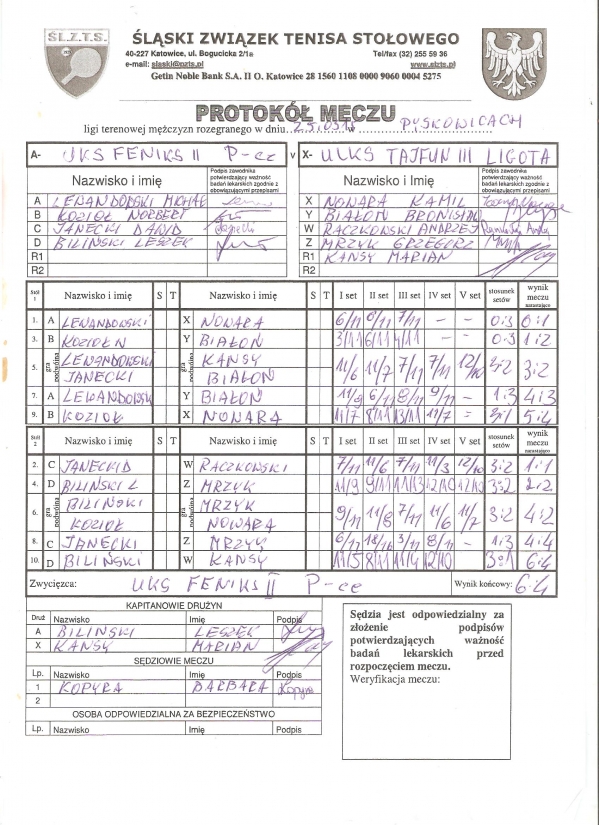 ŚL.Z.T.S.
ŚLĄSKI ZWIĄZEK TENISA STOŁOWEGO
40-227 Katowice, ul. Bogucicka 2/1a Tel/fax (32) 255 59 36
e-mail: slaski@pzts.pl www.slzts.pl
Getin Noble Bank S.A. II O. Katowice 28 1560 1108 0000 9060 0004 5275
PROTOKÓŁ MECZU
ligi terenowej mężczyzn rozegranego w dniu
A- UKS FENIKS II P-ce v X- ULKS TAJFUN III LIGOTA
Nazwisko i Imię Podpis zawodnika potwierdzający ważność badań lekarskich zgodnie z obowiązującymi przepisami Nazwisko i Imię Podpis zawodnika potwierdzający ważność badań lekarskich zgodnie z obowiązującymi przepisami
A LEWANDOWSKI X NOWARA KAMIL
B KOZIOŁ NORBERT Y BIAŁOŃ
C JANECKI DAWID W RACZKOWSKI ANDRZEJ
D BILIŃSKI LESZEK Z MRZYK GRZEGORZ
R1 R1 KANSY MARIAN
R2 R2
Stół 1 Nazwisko i imię S T Nazwisko i imię S T I set II set III set IV set V set stosunek setów wynik meczu narastająco
1. A LEWANDOWSKI X NOWARA 6/11 8/11 7/11 - - 0:3 0:1
3. B KOZIOŁ Y BIAŁOŃ 3/11 6/11 4/11 - - 0:3 1:2
5. gra podwójna LEWANDOWSKI KANSY 11/6 11/7 7/11 7/11 12/10 3:2 3:2
JANECKI BIAŁOŃ
7. A LEWANDOWSKI Y BIAŁOŃ 11/9 6/11 8/11 9/11 - 1:3 4:3
9. B KOZIOŁ X NOWARA 11/7 8/11 13/11 11/7 = 3:1 5:4
Stół 2 Nazwisko i imię S T Nazwisko i imię S T I set II set III set IV set V set stosunek setów wynik meczu narastająco
2. C JANECKI D W RACZKOWSKI 7/11 11/6 7/11 11/3 12/10 3:2 1:1
4. D BILIŃSKI L Z MRZYK 11/9 9/11 11/13 12/10 12/10 3:2 2:2
6. gra podwójna BILIŃSKI gra podwójna MRZYK 9/11 11/8 7/11 11/6 11/7 3:2 4:2
KOZIOŁ NOWARA
8. C JANECKI Z MRZYK - 1:3 4:4
10. D BILIŃSKI W KANSY 11/5 8/11 11/4 12/10 3:1 6:4
Zwycięzca: UKS FENIKS II P-ce Wynik końcowy: 6:4
KAPITANOWIE DRUŻYN
Druż Nazwisko Imię Podpis
A BILIŃSKI LESZEK
X KANSY MARIAN
SĘDZIOWIE MECZU
Lp. Nazwisko Imię Podpis
1 KOPYRA BARBARA Kopyra
2
OSOBA ODPOWIEDZIALNA ZA BEZPIECZEŃSTWO
Lp. Nazwisko Imię Podpis
Sędzia jest odpowiedzialny za
złożenie podpisów
potwierdzających ważność
badań lekarskich przed
rozpoczęciem meczu.
Weryfikacja meczu: